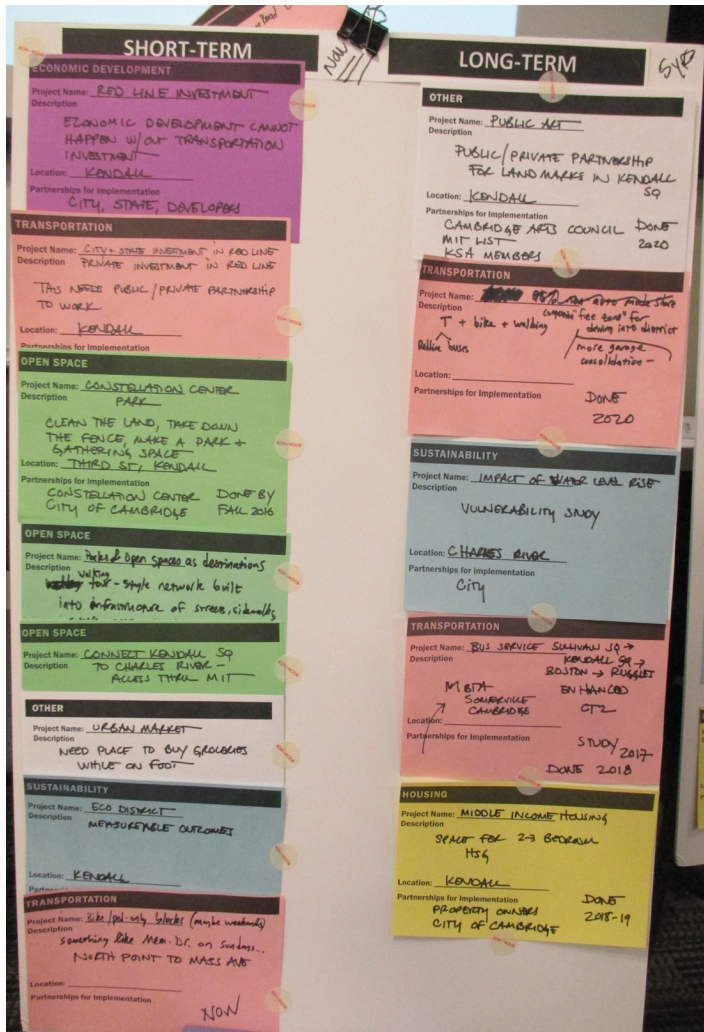 SHORT-TERM
NOW
ECONOMIC DEVELOPMENT
Project Name: RED LINE INVESTMENT
Description
ECONOMIC DEVELOPMENT CANNOT
HAPPEN W/OUT TRANSPORTATION
INVESTMENT
Location: KENDALL
Partnerships for Implementation
CITY, STATE, DEVELOPERS
TRANSPORTATION
Project Name: CITY + STATE INVESTMENT IN RED LINE
Description PRIVATE INVESTMENT IN RED LINE
THIS NEEDS PUBLIC/PRIVATE PARTNERSHIP
TO WORK
Location: KENDALL
Partnerships for Implementation
OPEN SPACE
Project Name: CONSTELLATION CENTER
Description PARK
CLEAN THE LAND, TAKE DOWN
THE FENCE, MAKE A PARK +
GATHERING SPACE
Location: THIRD ST, KENDALL
Partnerships for Implementation
CONSTELLATION CENTER DONE BY
CITY OF CAMBRIDGE FALL 2016
OPEN SPACE
Project Name: Parks & Open spaces as destinations
Description walking
tour-style network built
into infrastructure of streets, sidewalks
OPEN SPACE
Project Name: CONNECT KENDALL SQ
Description TO CHARLES RIVER -
ACCESS THRU MIT
OTHER
Project Name: URBAN MARKET
Description
NEED PLACE TO BUY GROCERIES
WHILE ON FOOT
SUSTAINABILITY
Project Name: ECO DISTRICT
Description MEASUREABLE OUTCOMES
Location: KENDALL
TRANSPORTATION
Project Name: Bike/ped-only blocks (maybe weekends)
Description
something like Mem. Dr. on Sundays...
NORTH POINT TO MASS AVE
Location:
Partnerships for Implementation
NOW
LONG-TERM
5 YRS
OTHER
Project Name: PUBLIC ART
Description
PUBLIC/PRIVATE PARTNERSHIP
FOR LANDMARKS IN KENDALL
SQ
Location: KENDALL
Partnerships for Implementation
CAMBRIDGE ARTS COUNCIL DONE
MIT LIST 2020
KSA MEMBERS
TRANSPORTATION
Project Name: auto mode share
Description "free zone" for
T + bike + walking driving into district
Redline buses
more garage
consolidation -
Location:
Partnerships for Implementation
DONE
2020
SUSTAINABILITY
Project Name: IMPACT OF WATER LEVEL RISE
Description
VULNERABILITY STUDY
Location: CHARLES RIVER
Partnerships for Implementation
CITY
TRANSPORTATION
Project Name: BUS SERVICE SULLIVAN SQ →
Description KENDALL SQ →
BOSTON → RUGGLES
MBTA ENHANCED
SOMERVILLE
CAMBRIDGE CT2
Location:
Partnerships for Implementation
STUDY 2017
DONE 2018
HOUSING
Project Name: MIDDLE INCOME HOUSING
Description
SPACE FOR 2-3 BEDROOM
HSG
Location: KENDALL
Partnerships for Implementation DONE
PROPERTY OWNERS 2018-19
CITY OF CAMBRIDGE